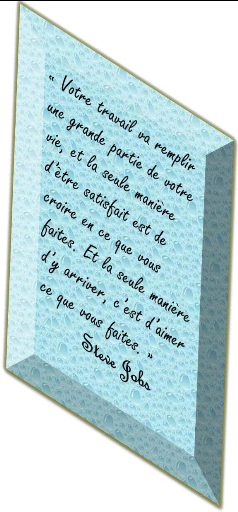 « Votre travail va remplir
une grande partie de votre
vie, et la seule manière
d'être satisfait est de
croire en ce que vous
faites. Et la seule manière
d'y arriver, c'est d'aimer
ce que vous faites. »
Steve Jobs